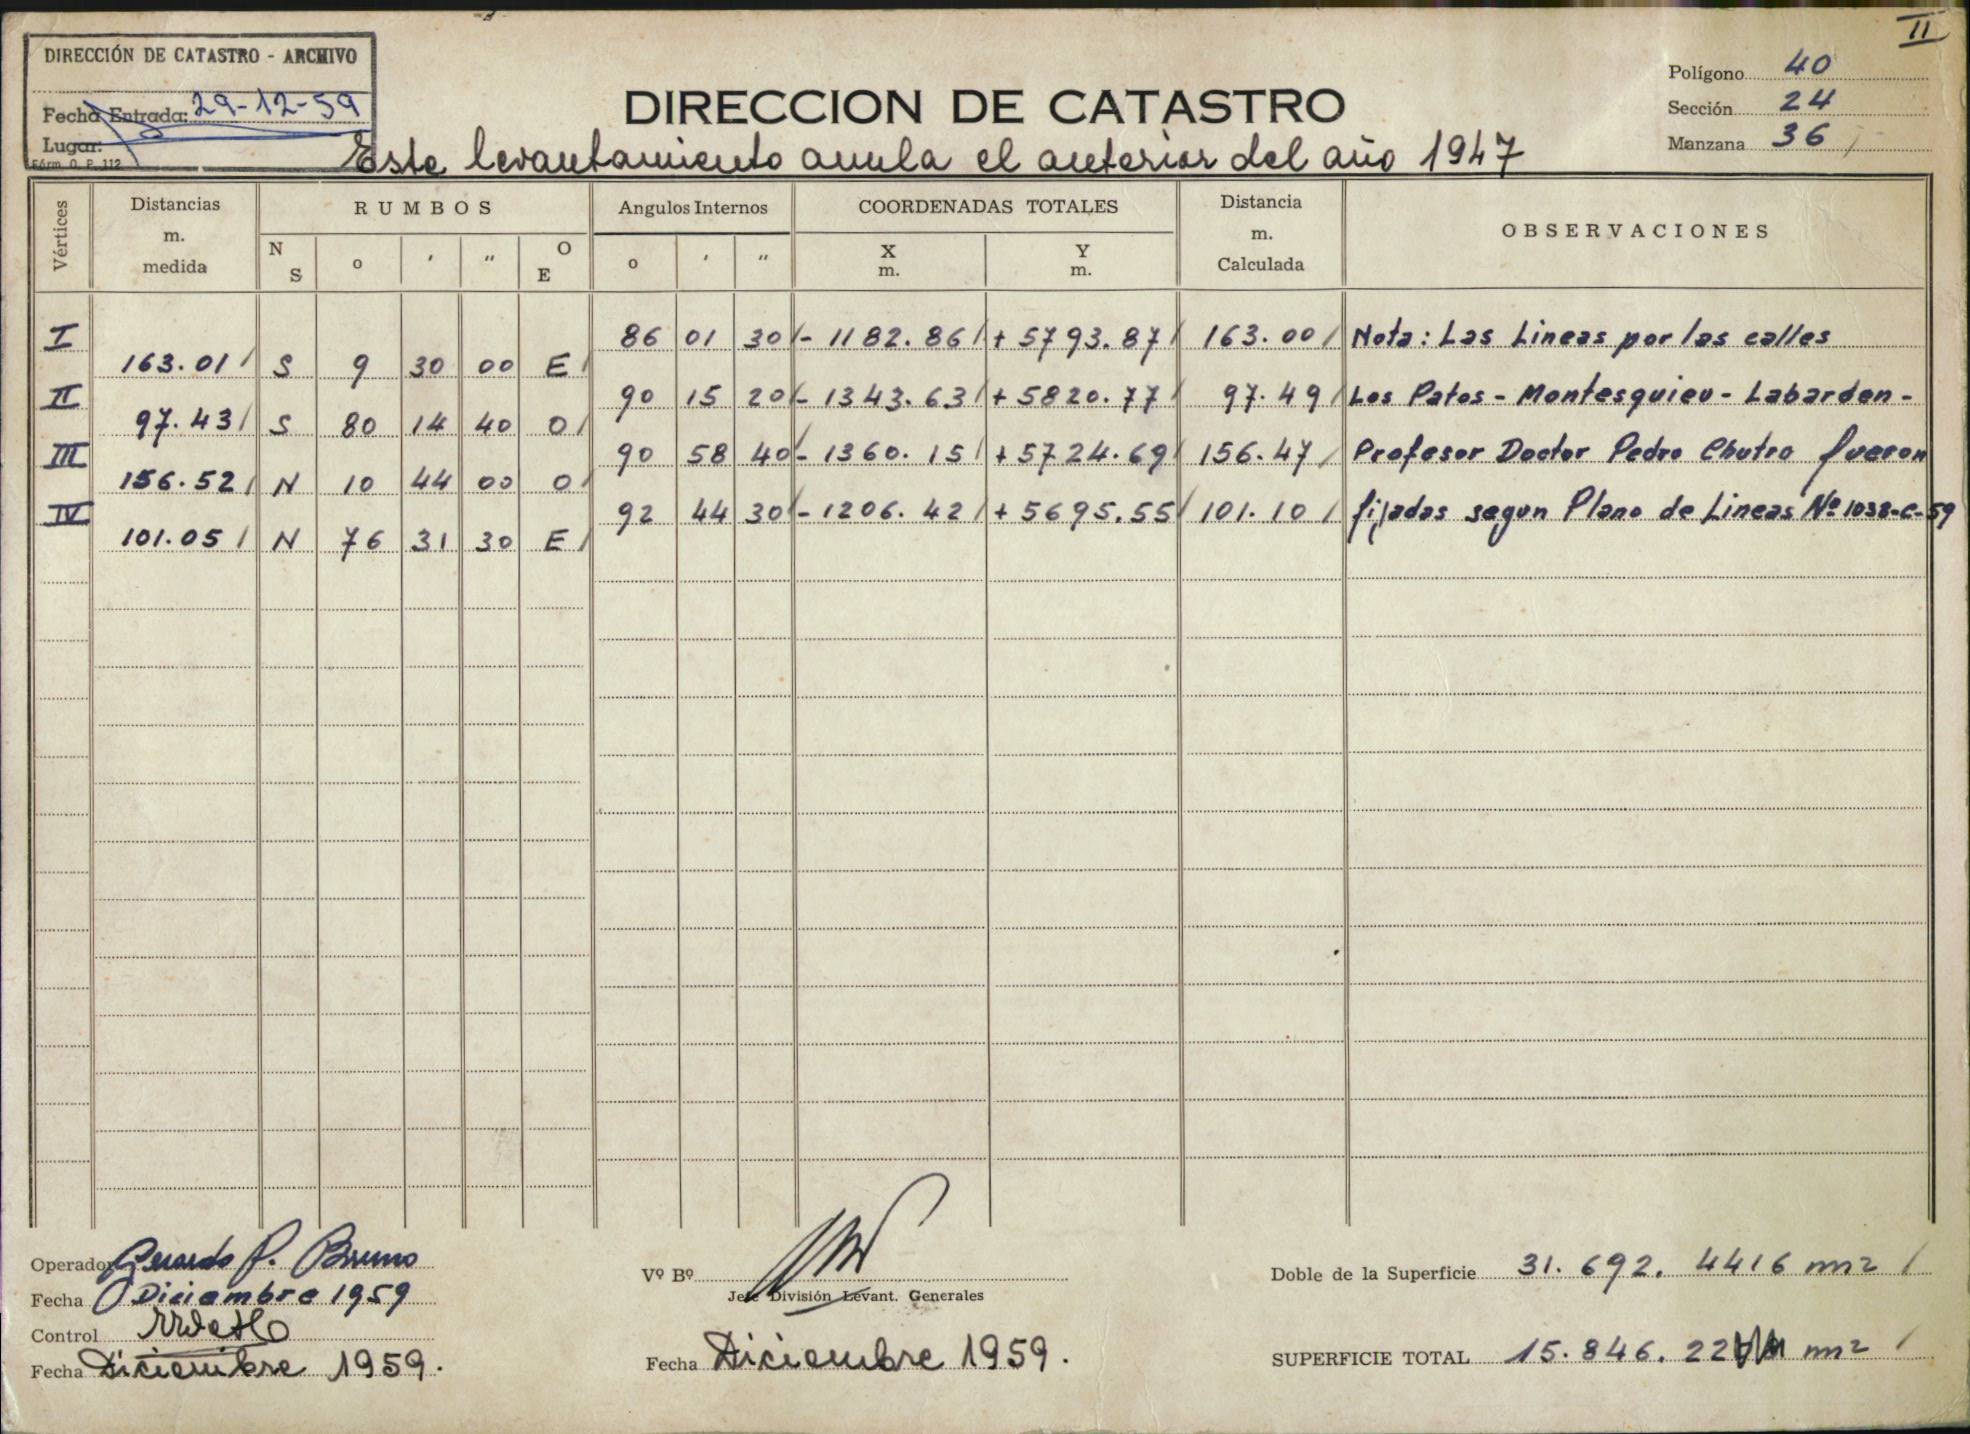 II
DIRECCIÓN DE CATASTRO - ARCHIVO
Fecha Entrada: 29-12-59
Lugar:
Fórm. O. P. 112
DIRECCION DE CATASTRO
Este levantamiento anula el anterior del año 1947
Polígono 40
Sección 24
Manzana 36
Vértices Distancias m. medida RUMBOS Angulos Internos COORDENADAS TOTALES Distancia m. Calculada OBSERVACIONES
N S o ′ ″ O E o ′ ″ X m. Y m.
I 86 01 30 - 1182.86 + 5793.87 163.00 Nota: Las Lineas por las calles
163.01 S 9 30 00 E
II 90 15 20 - 1343.63 + 5820.77 97.49 Los Patos - Montesquieu - Labarden -
97.43 S 80 14 40 O
III 90 58 40 - 1360.15 + 5724.69 156.47 Profesor Doctor Pedro Chutro fueron
156.52 N 10 44 00 O
IV 92 44 30 - 1206.42 + 5695.55 101.10 fijadas segun Plano de Lineas Nº 1038-C-59
101.05 N 76 31 30 E
Operador Gerardo P. Bruno
Fecha Diciembre 1959
Control
Fecha Diciembre 1959.
Vº Bº
Jefe División Levant. Generales
Fecha Diciembre 1959.
Doble de la Superficie 31.692.4416 m2
SUPERFICIE TOTAL 15.846.22 m2